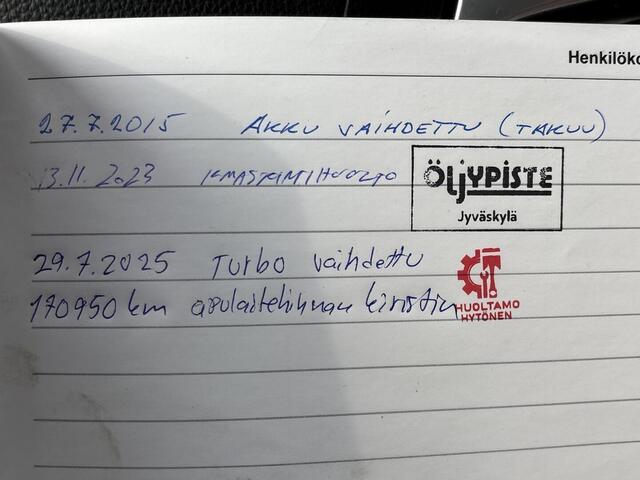 Henkilöko
27.7.2015 AKKU VAIHDETTU (TAKUU)
13.11.2023 ILMASTOINTIHUOLTO
ÖLJYPISTE
Jyväskylä
29.7.2025 Turbo vaihdettu
170950 km apulaitehihnan kiristin
HUOLTAMO
HYTÖNEN